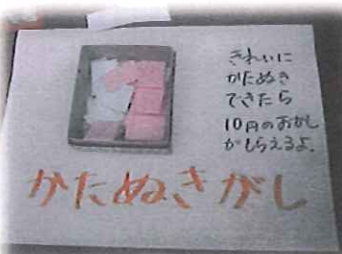 きれいに
かたぬき
できたら
10円のおかし
がもらえるよ。
かたぬきがし